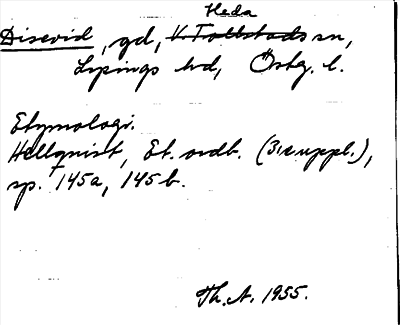 Heda
Disevid, gd, V. Tollstads sn,
Lysings hd, Östg. l.
Etymologi.
Hellquist, Et. ordb. (3:e uppl.),
sp. 145a, 145b.
Th. A. 1955.